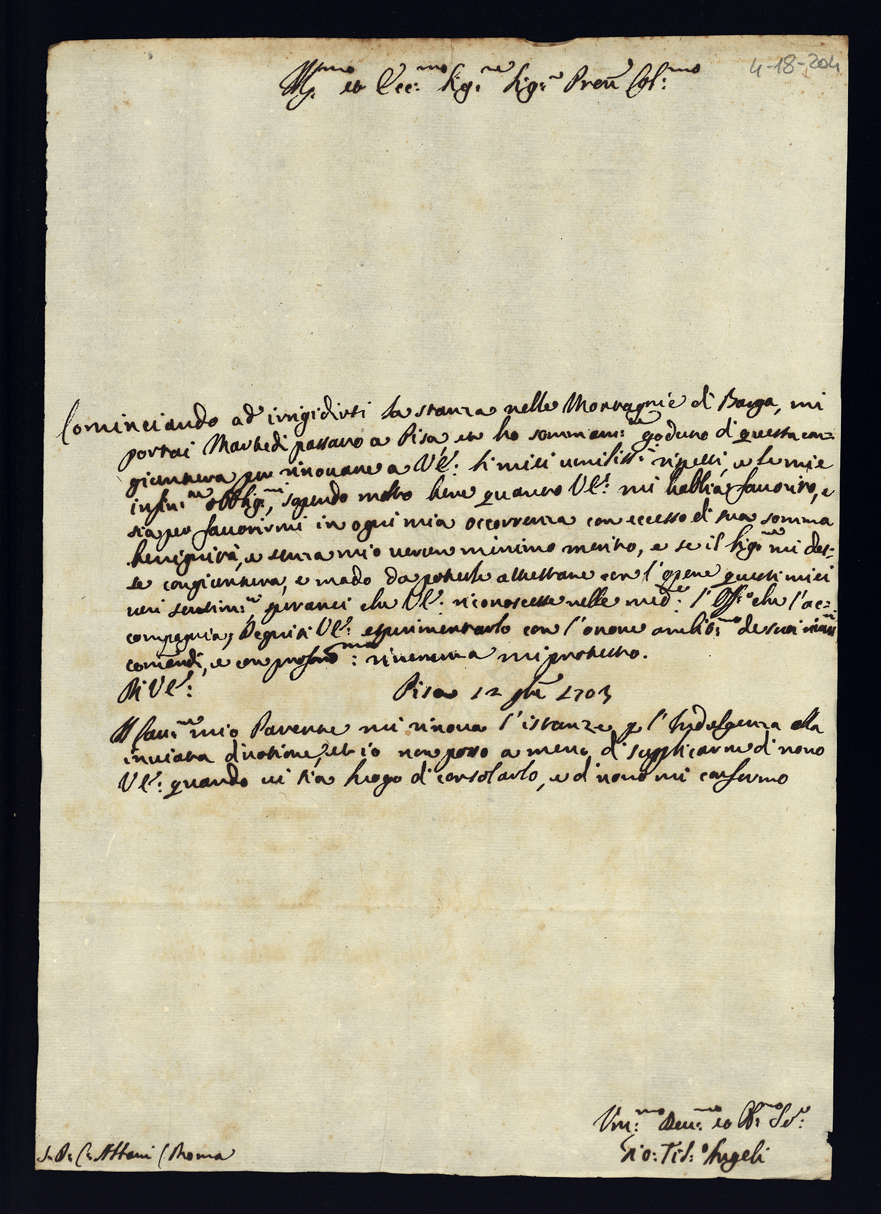 4-18-204
Ill:mo et Ecc:mo Sig:re Sig:re Pron Col:mo
Cominciando ad irrigidirsi la stanza nelle Montagnie di Barga, mi
portai Martedi passato a Pisa et ho sommam:te goduto di questa con-
giuntura per rinovare a V.E: li miei umilissi:i rispetti, e le mie
infin:te obblig:ni, sapendo molto bene quanto V.E: mi habbia favorito, e
sia per favorirmi in ogni mia occorrenza con eccesso di sua somma
benignità, e senza mio verun minimo merito, e se il Sig:re mi des-
se congiuntura, e modo da poterle attestare con l'opere questi miei
veri sentim:ti sperarei che V.E: riconoscesse nelle med:e l'Aff:o che l'ac-
compagnia; Degnisi V.E: esperimentarlo con l'onore ambiti:mo de suoi
comandi, e con profond:ma: riverenza mi protesto.
Di V.E: Pisa 12 9bre 1703
Il mio Parente mi rinova l'istanze p l'Indulgenza alla
inviata divotione, et io non posso a meno di supplicarne di novo
V.E: quando vi sia luogo di consolarlo, e di novo mi confermo
Um:mo Dev:mo et Ob:mo Se:re
Gio: Tis: Angeli
S. D. C. Albani (Roma